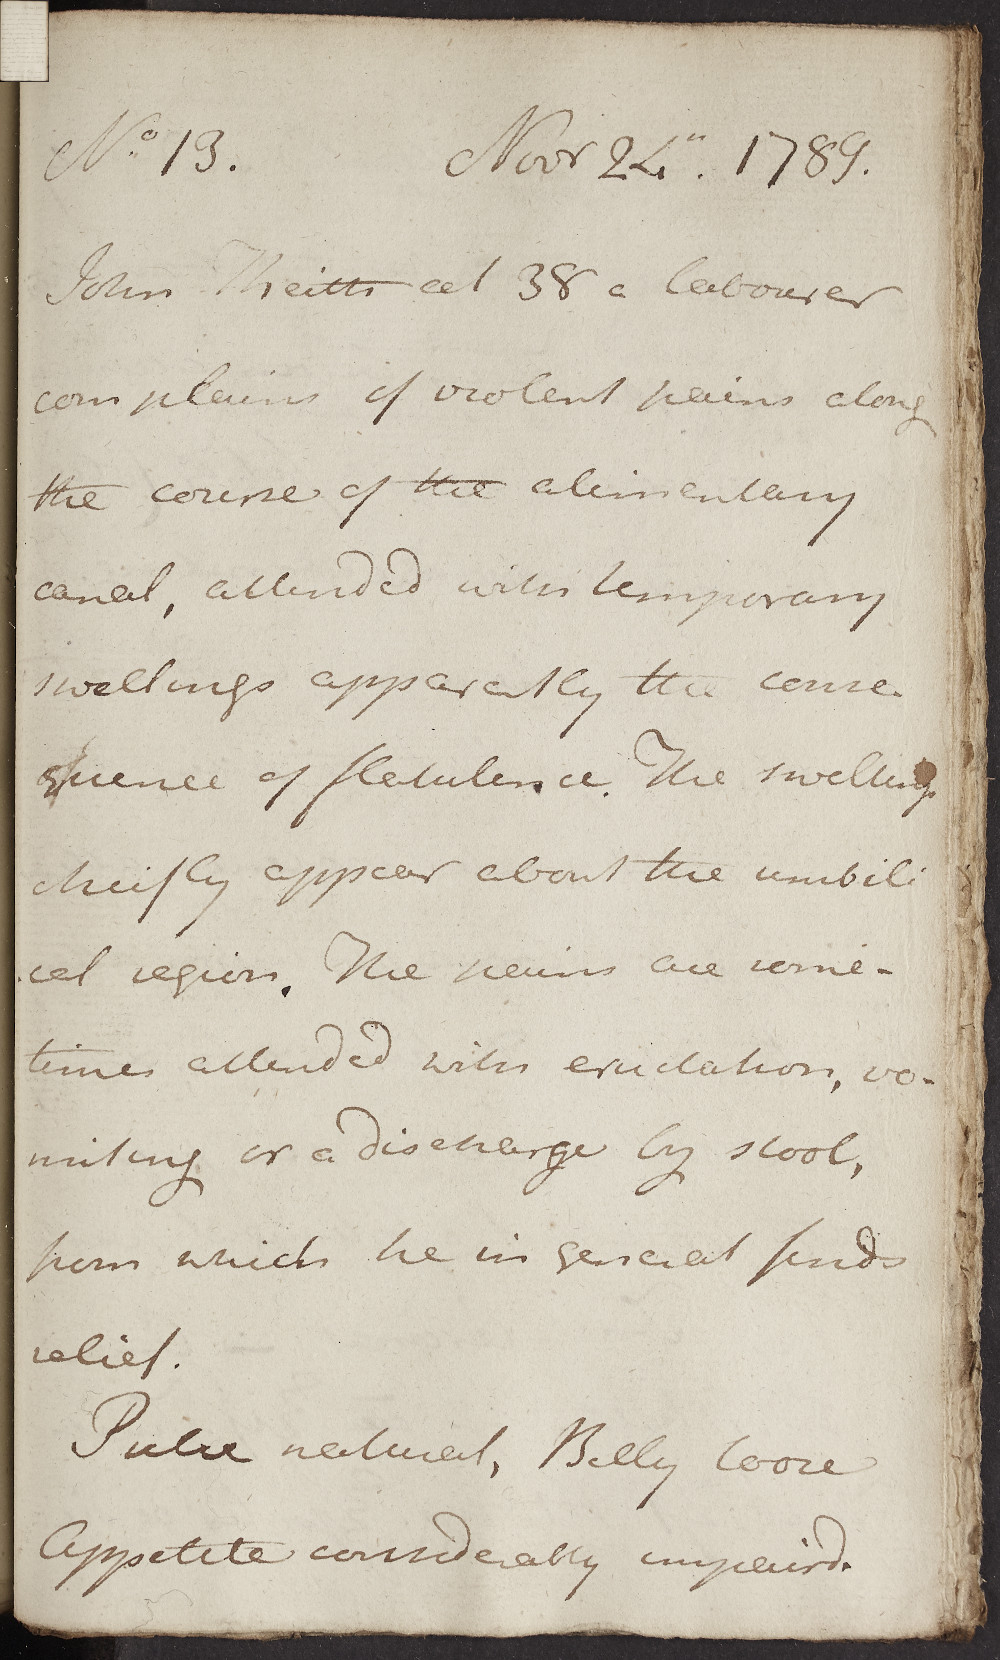 No 13. Novr 24th. 1789.
John aet 38 a labourer
complains of violent pains along
the course of the alimentary
canal, attended with temporary
swellings apparently the conse-
quence of flatulence. The swellings
cheifly appear about the umbili
cal region. The pains are some-
times attended with eructation, vo-
miting or a discharge by stool,
from which he in general finds
relief.
Pulse natural, Belly loose
Appetite considerably impaird.